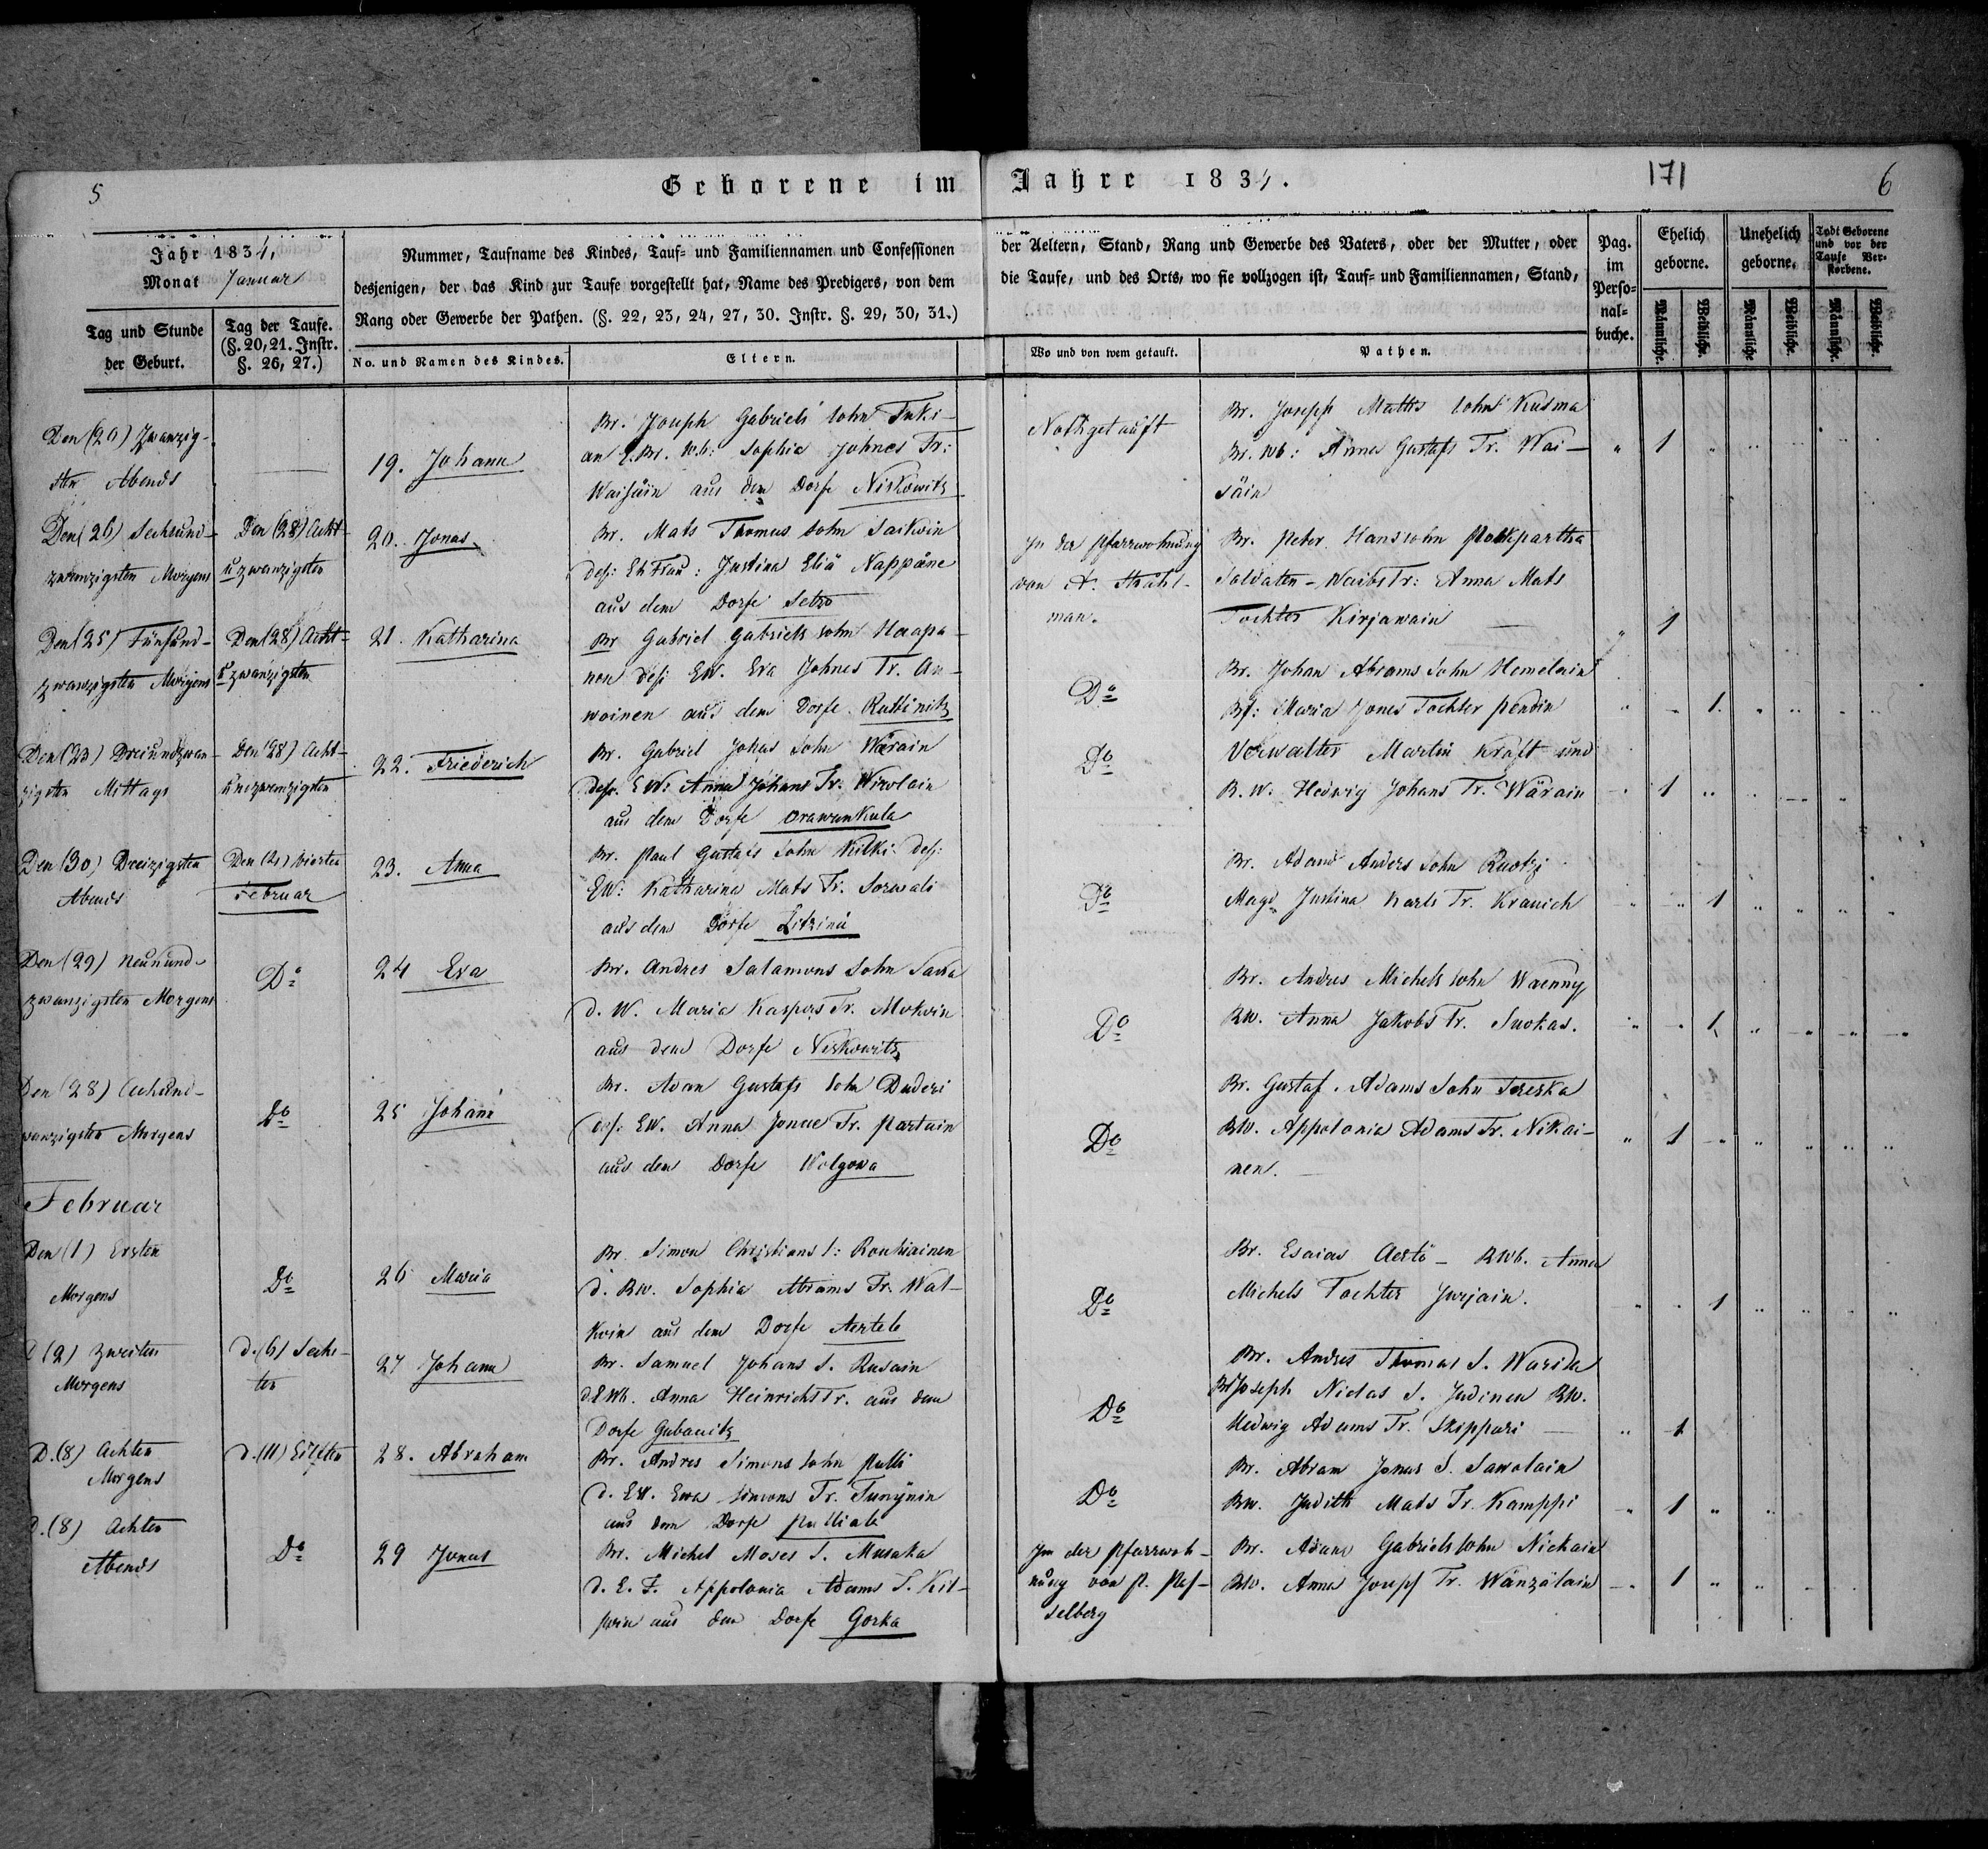 5
Geborene im Jahre 1834.
171
6
Jahr 1834,
Monat Januar
Tag und Stunde
der Geburt.
Tag der Taufe.
(§. 20, 21. Instr.
§. 26, 27.)
Nummer, Taufname des Kindes, Tauf- und Familiennamen und Confessionen
desjenigen, der das Kind zur Taufe vorgestellt hat, Name des Predigers, von dem
Rang oder Gewerbe der Pathen. (§. 22, 23, 24, 27, 30. Instr. §. 29, 30, 31.)
No. und Namen des Kindes.
Eltern.
der Aeltern, Stand, Rang und Gewerbe des Vaters, oder der Mutter, oder
die Taufe, und des Orts, wo sie vollzogen ist, Tauf- und Familiennamen, Stand,
Wo und von wem getauft.
Pathen.
Pag.
im
Perso-
nal-
buche.
Ehelich
geborne.
Unehelich
geborne.
Todt Geborene
und vor der
Taufe Ver-
storbene.
Männliche.
Weibliche.
Männliche.
Weibliche.
Männliche.
Weibliche.
Den (20) Zwanzig-
sten Abends
19. Johann
Br. Joseph Gabriels sohn Tuki-
an E. Br. Wb: Sophia Johnes Tr:
aus dem Dorfe Niskowitz
Nothgetauft
Br. Joseph Matts sohn Kusma
Br. Wb: Anna Gustafs Tr. Wai-
säin
1
Den (26) Sechsund-
zwanzigsten Morgens
Den (28) Acht-
u zwanzigsten
20. Jonas
Br. Mats Thomas sohn Saikoin
deß: Eh Frau: Justina Eliä Nappäne
aus dem Dorfe Setzo
In der Pfarrwohnung
von A. Strahl-
man.
Br. Peter Hanssohn
Soldaten-Waibstr: Anna Mats
Tochter Kirjawain
1
Den (25) Fünfund-
zwanzigsten Morgens
Den (28) Acht-
u zwanzigsten
21. Katharina
Br Gabriel Gabriels sohn Haapa-
nen deß: EW. Eva Johnes Tr. An-
woinen aus dem Dorfe
Do
Br. Johan Abrams Sohn Homelain
Bf: Maria Jones Tochter Pendin
1.
Den (23) Dreiundzwan-
zigsten Mittags
Den (28) Acht-
undzwanzigsten
22. Friederich
Br. Gabriel Johas Sohn Wärain
deß. EW: Anna Johans Tr. Wirolain
aus dem Dorfe Orawankula
Do
Verwalter Martin Kraft und
B. W. Hedwig Johans Tr. Wärain
1
Den (30) Dreizigsten
Abends
Den (4) vierten
Februar
23. Anna
Br. Paul Gustafs Sohn Kilki deß:
EW: Katharina Mats Tr. Sorwali
aus dem Dorfe Litzina
Do
Br. Adam Anders Sohn Ruotzi
Magd Justina Karls Tr. Kranich
1
Den (29) Neunund-
zwanzigsten Morgens
Do
24 Eva
Br. Andres Salamons Sohn Sawa
d. W. Maria Kaspers Tr. Mokoin
aus dem Dorfe Niskowitz
Do
Br. Andres Michels sohn Waenny
BW. Anna Jakobs Tr. Suokas.
1
Den (28) Achtund-
wanzigsten Morgens
Do
25 Johann
Br. Adam Gustafs Sohn Duderi
deß: EW. Anna Jonae Tr. Partain
aus dem Dorfe Wolgowa
Do
Br. Gustaf. Adams Sohn Toreska
BW. Appolonia Adams Tr. Nikai-
nen.
1
Februar
Den (1) Ersten
Morgens
Do
26 Maria
Br. Simon Christians S: Rouhiainen
d. BW. Sophia Abrams Tr. Wal-
koin aus dem Dorfe Aertele
Do
Br. Esaias Aertö - BWb. Anna
Michels Tochter Jurjain.
1
D (2) Zweiten
Morgens
d. (6) Sechs-
ten
27 Johann
Br. Samuel Johans S. Rusain
d. E Wb. Anna Heinrichs Tr. aus dem
Dorfe Gubanitz
Do
Br. Andres Thomas S. Warila
Br Joseph Niclas S. Judinen BW.
Hedwig Adams Tr. Skippari
1
D. (8) Achten
Morgens
d. (11) Eilften
28. Abraham
Br. Andres Simons sohn Pulli
d. EW. Ewa Simons Tr.
aus dem Dorfe
Do
Br. Abram Jonas S. Sawolain
BW. Judith Mats Tr. Kamppi
1
D. (8) Achten
Abends
Do
29 Jonas
Br. Michel Moses S. Musaka
d. E. F. Appolonia Adams T. Kil-
aus dem Dorfe Gorka
In der Pfarrwoh-
nung von P. Pes-
selberg
Br. Adam Gabriels sohn Nickain
BW. Anna Joseph Tr. Wänzälain
1